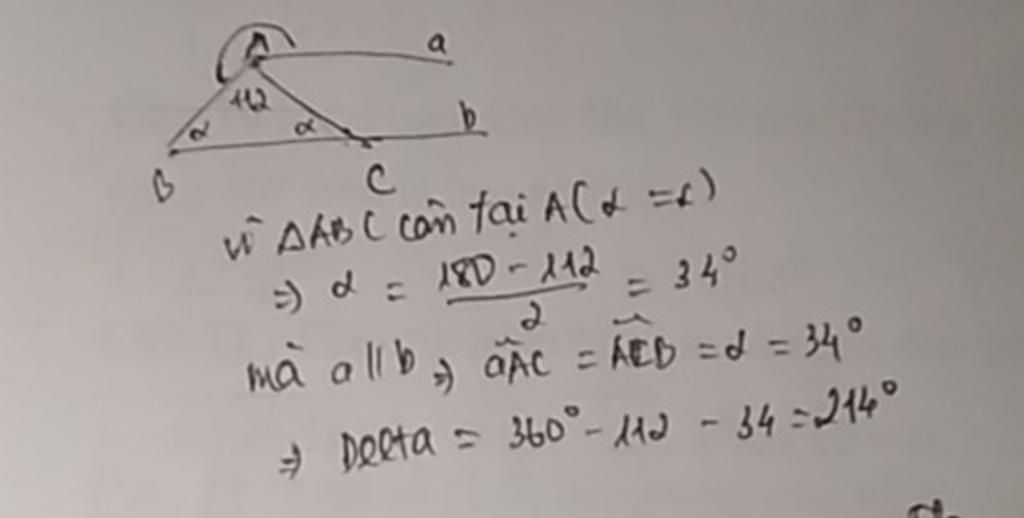 A
a
112
α
α
b
B
C
vì ΔABC cân tại A(α = α)
⇒ α = \frac{180 - 112}{2} = 34°
mà a // b ⇒ aAC = ACB = α = 34°
⇒ Delta = 360° - 112 - 34 = 214°